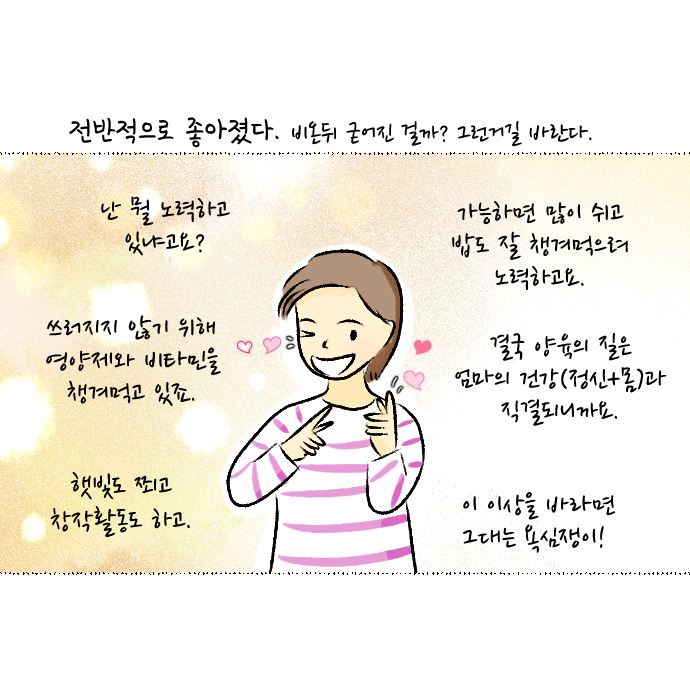 전반적으로 좋아졌다. 비온뒤 굳어진 걸까? 그런거길 바란다.
난 뭘 노력하고
있냐고요?
쓰러지지 않기 위해
영양제와 비타민을
챙겨먹고 있죠.
햇빛도 쬐고
창작활동도 하고.
가능하면 많이 쉬고
밥도 잘 챙겨먹으려
노력하고요.
결국 양육의 질은
엄마의 건강(정신+몸)과
직결되니까요.
이 이상을 바라면
그대는 욕심쟁이!